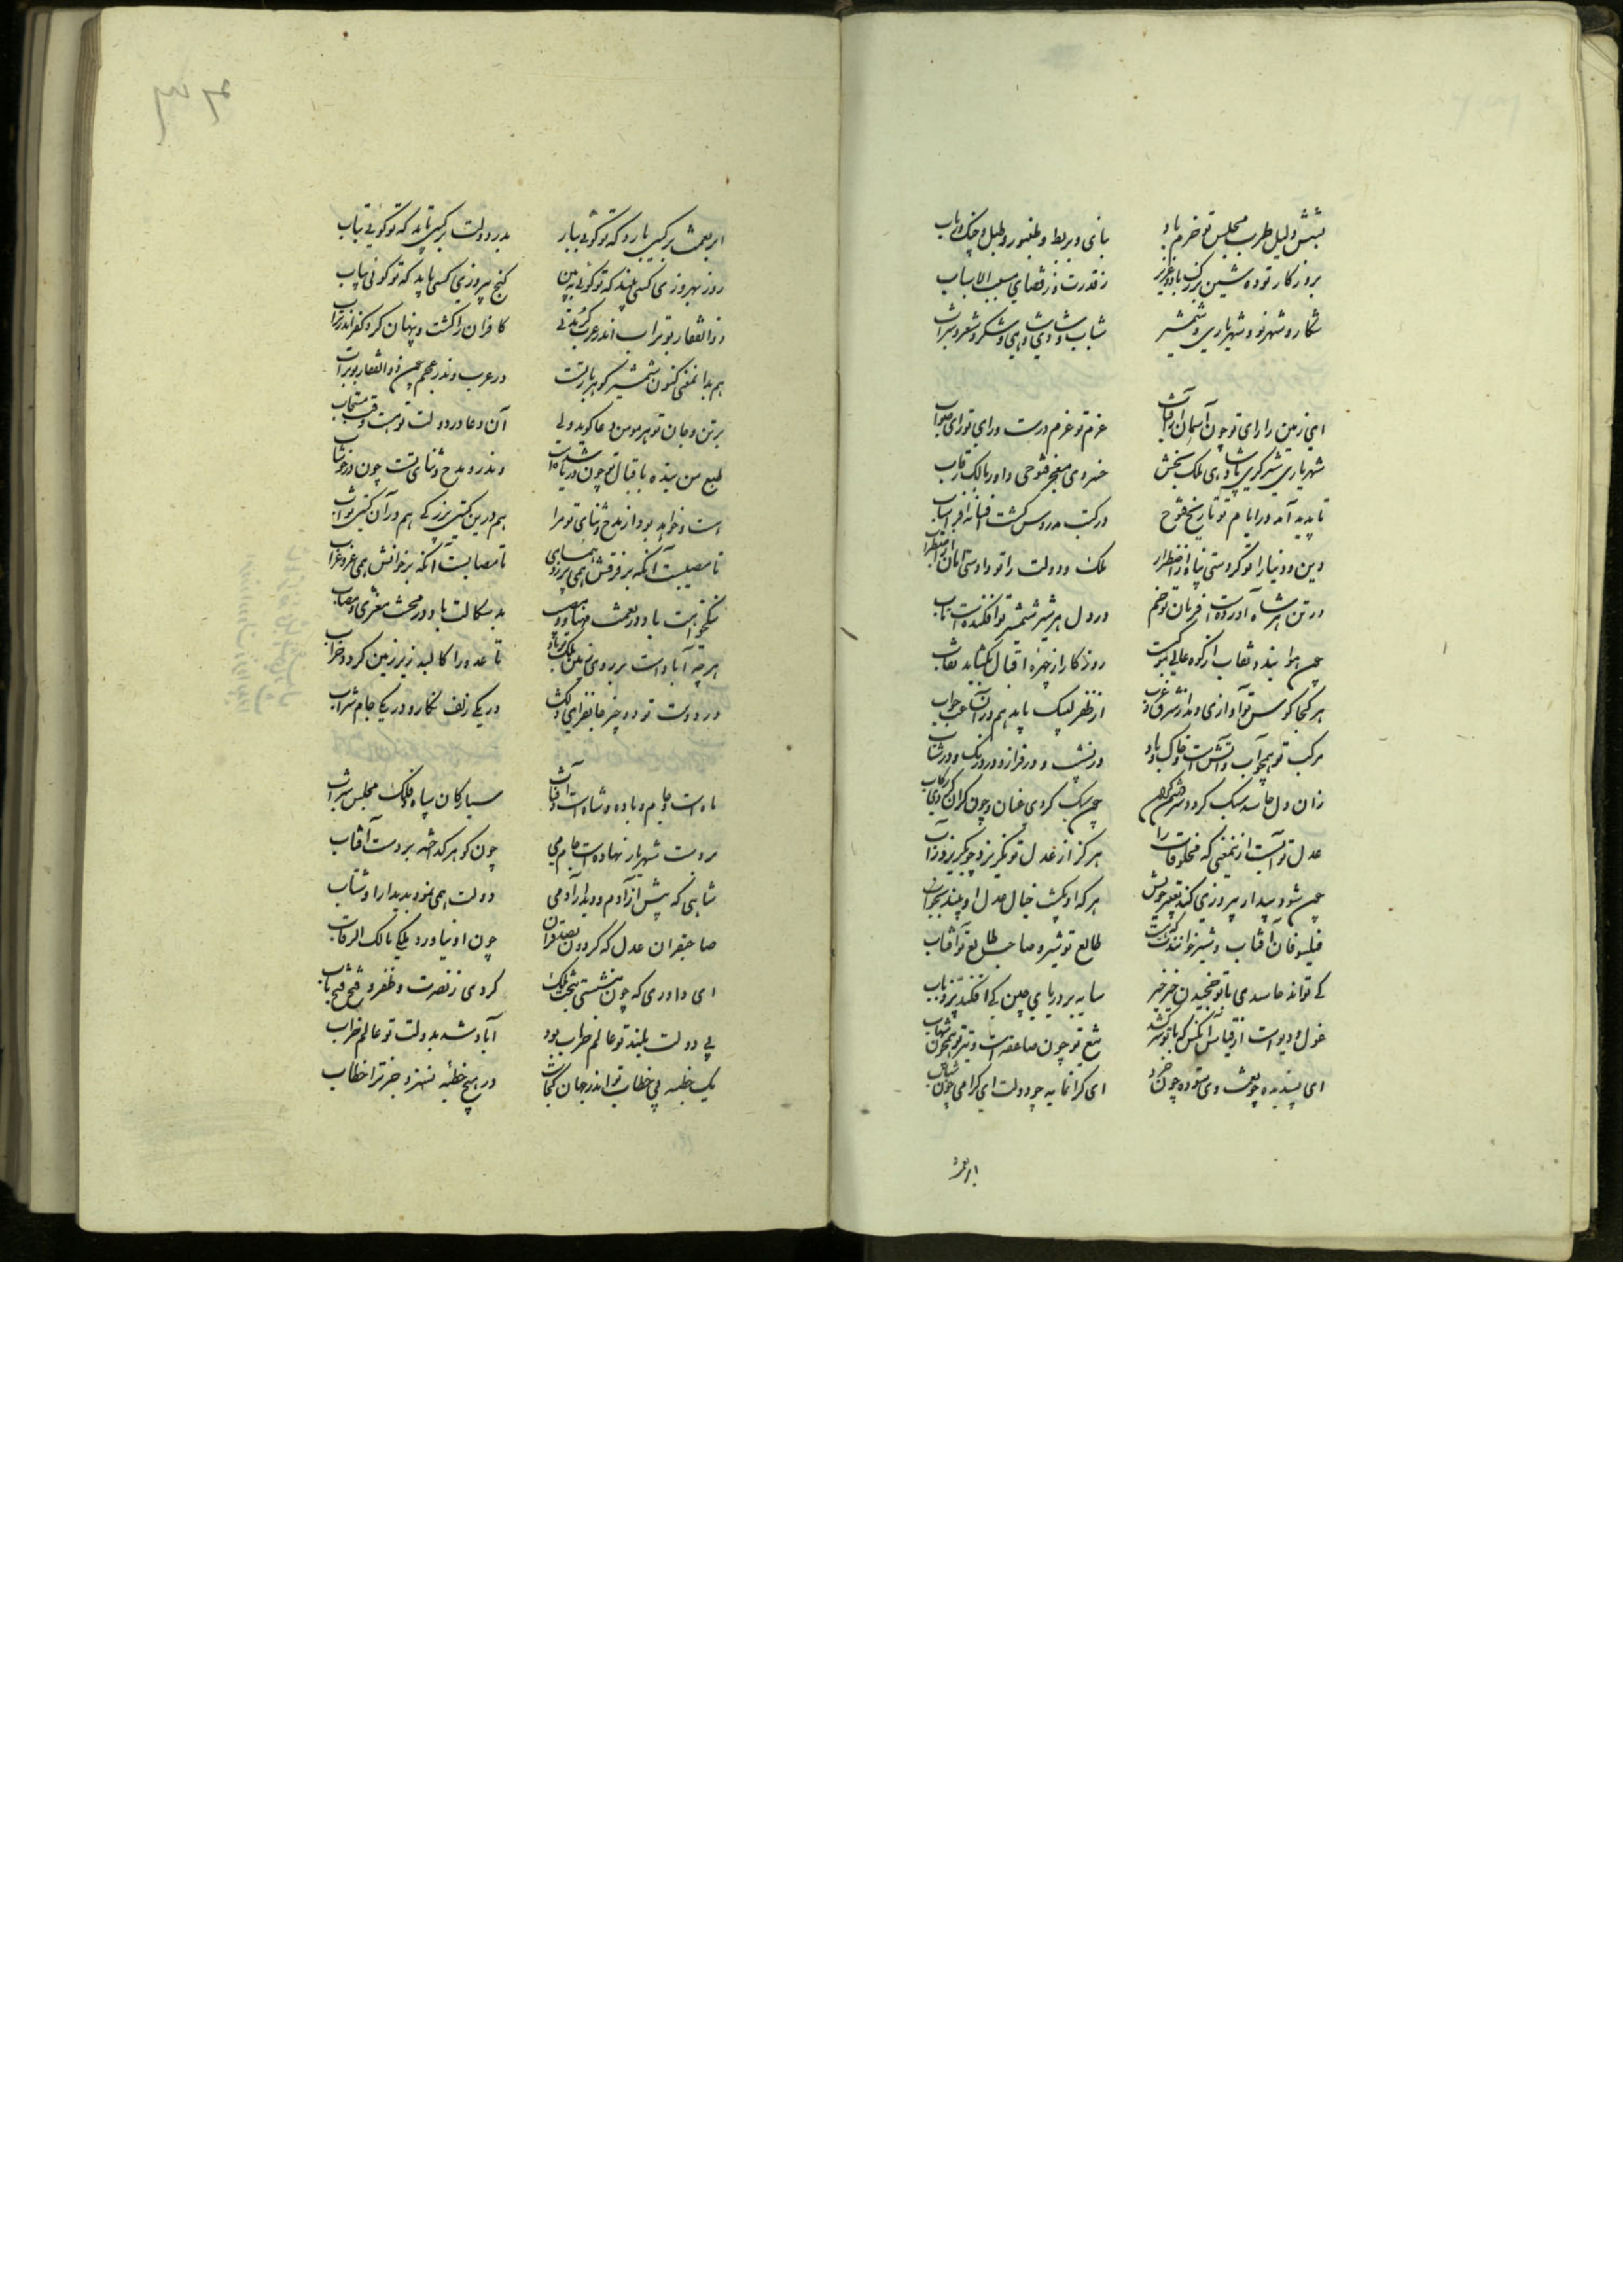 بشش دلیل طرب مجلس تو خرم باد بنای و بربط و طنبور و طبل و چنگ و رباب
بروزکار تو ده شین بزرک باد و عزیز ز قدرت و ز قضای مسبب الاسباب
شکار و شهر نو و شهریاری و شمشیر شباب و شادی و شاهی و شکر و شعر و شراب
ای زمین را رای تو چون آسمان را آفتاب عزم تو عزم درست و رای تو رای صواب
شهریاری شیرکیری پادشاهی ملک بخش خسروی مفخر فتوحی داور مالک رقاب
تا پدید آمد در ایام تو تاریخ فتوح در کتب مدروس کشت افسانه افراسیاب
دین و دنیا را تو کردستی پناه از اضطرار ملک و دولت را تو دادستی امان از اضطراب
در تن هر شاه آوردست فرمان تو خم در دل هر شیر شمشیر تو افکندست تاب
چون هوا بندد نقاب از کوه عالی موکبت روزکار از چهره اقبال بکشاید نقاب
هر کجا کوس تو آوازی دهد از شرق و غرب از ظفر لبیک یابد هم در آن ساعت جواب
مرکب تو همچو آب و آتشست و خاک و باد در نشیب و در فراز و در درنک و در شتاب
زان دل حاسد سبک کردد سر خصم کران چون سبک کردی عنان و چون کران کردی رکاب
عدل تو آبست از بمعنی که مخلوقات را هرکز از عدل تو نکریزد چو نکریزد ز آب
چون شود بیدار پیروزی کند تعبیر خویش هر که او یکشب خیال عدل او بیند بخواب
فیلسوفان آفتاب و شیر خوانندت که هست طالع تو شیر و صاحب طالع تو آفتاب
کی تواند حاسدی با تو خنجیدن خیر خیر سایه بر دریای چین کی افکند پر ذباب
غول و دیوست از قیاس آنکس که با تو سر کشد تیغ تو چون صاعقه است و تیر تو همچون شهاب
ای پسندیده چو نعمت وی ستوده چون خرد ای کرانمایه چو دولت ای کرامی چون شباب
ابر نعمت
ابر نعمت بر کسی بارد که تو کوئی ببار بدر دولت بر کسی تابد که تو کوئی بتاب
روز بهروزی کسی بیند که تو کوئی ببین کنج پیروزی کسی یابد که تو کوئی بیاب
ذوالفقار بوتراب اندر عرب کر مدتی کافران را کشت و پنهان کرد کفر اندر تراب
هم بدان معنی کنون شمشیر کوهربار تست در عرب وندر عجم چون ذوالفقار بوتراب
بر تن و جان تو هر مومن دعا کوید ولی آن دعا در دولت تو هست وقت مستجاب
طبع من بنده باقبال تو چون دریا شدست وندرو مدح و ثنای تست چون در خوشاب
هست و خواهد بود از مدح و ثنای تو مرا هم درین کیتی بزرکی هم در آن کیتی ثواب
تا مصیبت آنکه بر فرقش همی پرد همای تا مصابست آنکه بر خوانش همی غرد غراب
نیکخواهت باد در نعمت مهنا و مصیب بدسکالت باد در محنت معزی و مصاب
هر چه آبادست بر روی زمین ملک تو باد تا عدو را کالبد زیر زمین کردد خراب
در دو دست تو دو چیز جانفزای و دلکش در یکی زلف نکار و در یکی جام شراب
ماهست جام و باده و شاه است آفتاب سیارکان سپاه و فلک مجلس شراب
بر دست شهریار نهادست جام می چون کوهر کداخته بر دست آفتاب
شاهی که پیش از آدم و دیدار آدمی دولت همی نمود بدیدار او شتاب
صاحبقران عدل که کردون بصد قران چون او نیاورد یکی مالک الرقاب
ای داوری که چون بنشستی بتخت ملک کردی ز نصرت و ظفر و فتح فتح باب
بی دولت بلند تو عالم خراب بود آباد شد بدولت تو عالم خراب
یک خطبه بی خطاب تو اندر جهان کجاست در هیچ خطبه نسزد جز ترا خطاب